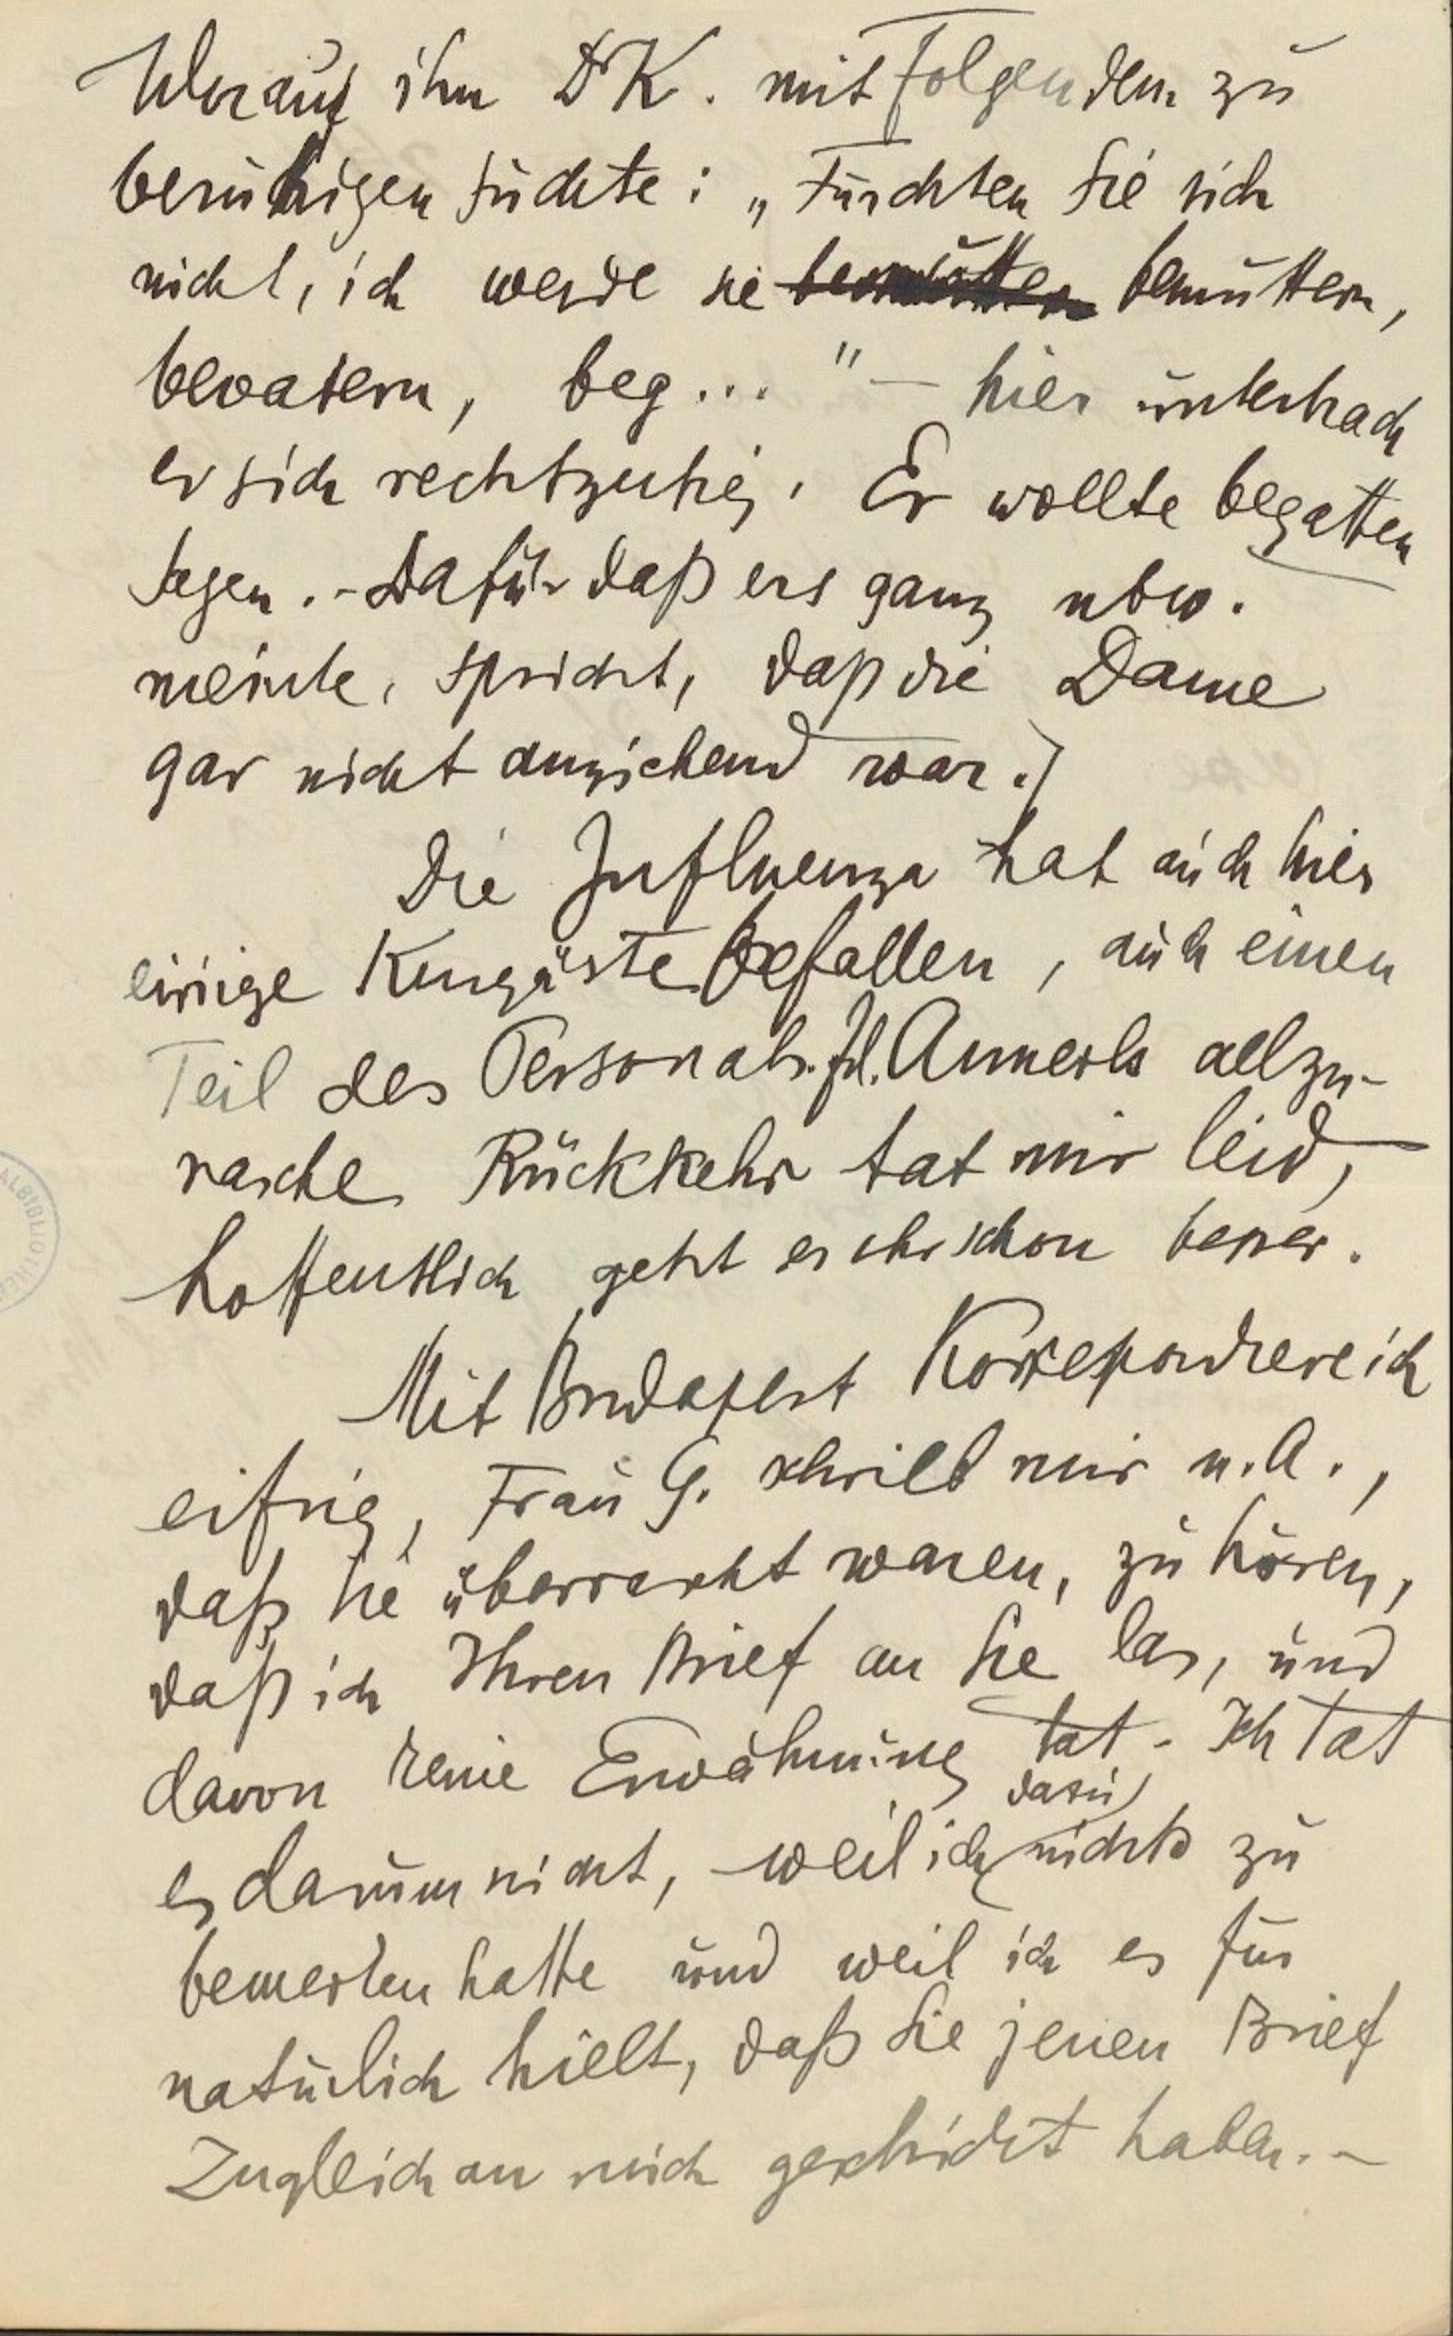 Worauf ihn Dr K. mit Folgendem zu
beruhigen suchte: „Fürchten Sie sich
nicht, ich werde sie bemuttern bemuttern,
bevatern, beg..." – hier unterbrach
er sich rechtzeitig. Er wollte begatten
sagen. – Dafür daß ers ganz ubw.
meinte, spricht, daß die Dame
gar nicht anziehend war.)
Die Influenza hat auch hier
einige Kurgäste befallen, auch einen
Teil des Personals. Frl. Annerls allzu-
rasche Rückkehr tat mir leid,
hoffentlich geht es ihr schon besser.
Mit Budapest Korrespondiere ich
eifrig, Frau G. schrieb mir u. A.,
daß sie überrascht waren, zu hören,
daß ich Ihren Brief an Sie las, und
davon keine Erwähnung tat. Ich tat
es darum nicht, weil ich dazu nichts zu
bemerken hatte und weil ich es für
natürlich hielt, daß Sie jenen Brief
Zugleich an mich geschickt haben. –
ALBIBLIOTHE